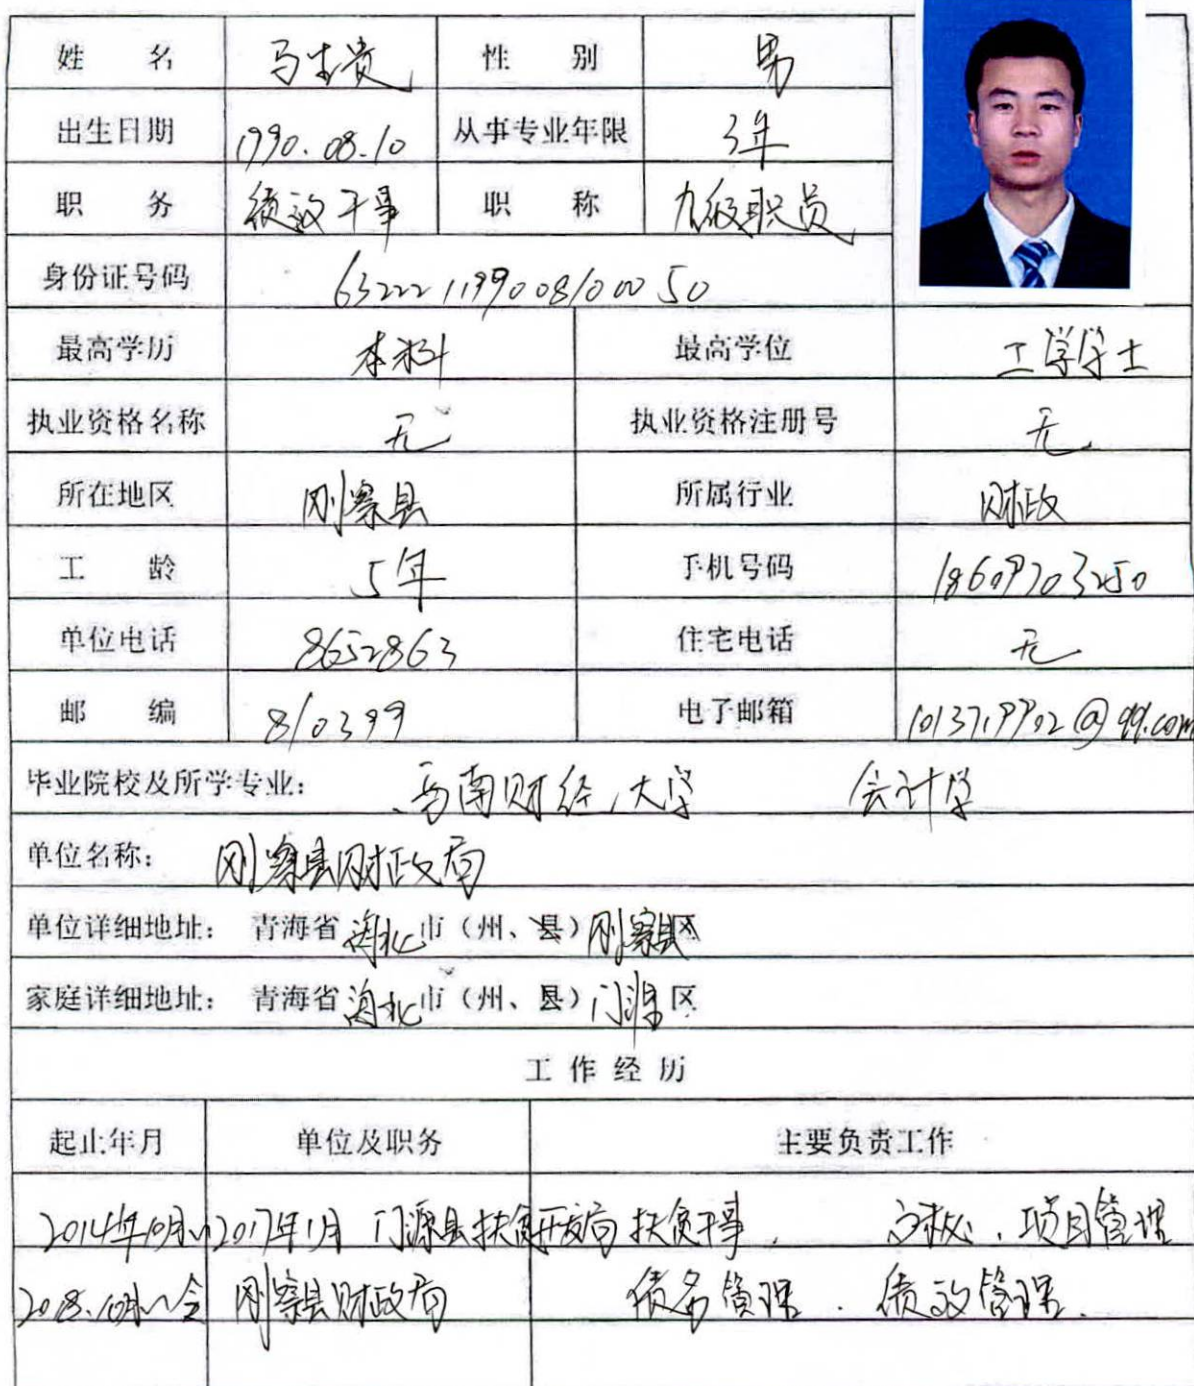 姓 名 马生贵 性 别 男
出生日期 1990.08.10 从事专业年限 3年
职 务 绩效干事 职 称 九级职员
身份证号码 632221199008100050
最高学历 本科 最高学位 工学学士
执业资格名称 无 执业资格注册号 无
所在地区 刚察县 所属行业 财政
工 龄 5年 手机号码 18609703250
单位电话 8652863 住宅电话 无
邮 编 810399 电子邮箱 1013719902@qq.com
毕业院校及所学专业: 西南财经大学 会计学
单位名称: 刚察县财政局
单位详细地址: 青海省海北市(州、县)刚察县区
家庭详细地址: 青海省海北市(州、县)门源区
工 作 经 历
起止年月 单位及职务 主要负责工作
2014年10月~2017年1月 门源县扶贫开发局 扶贫干事、 文秘、项目管理
2018.10月~今 刚察县财政局 债务管理、绩效管理.